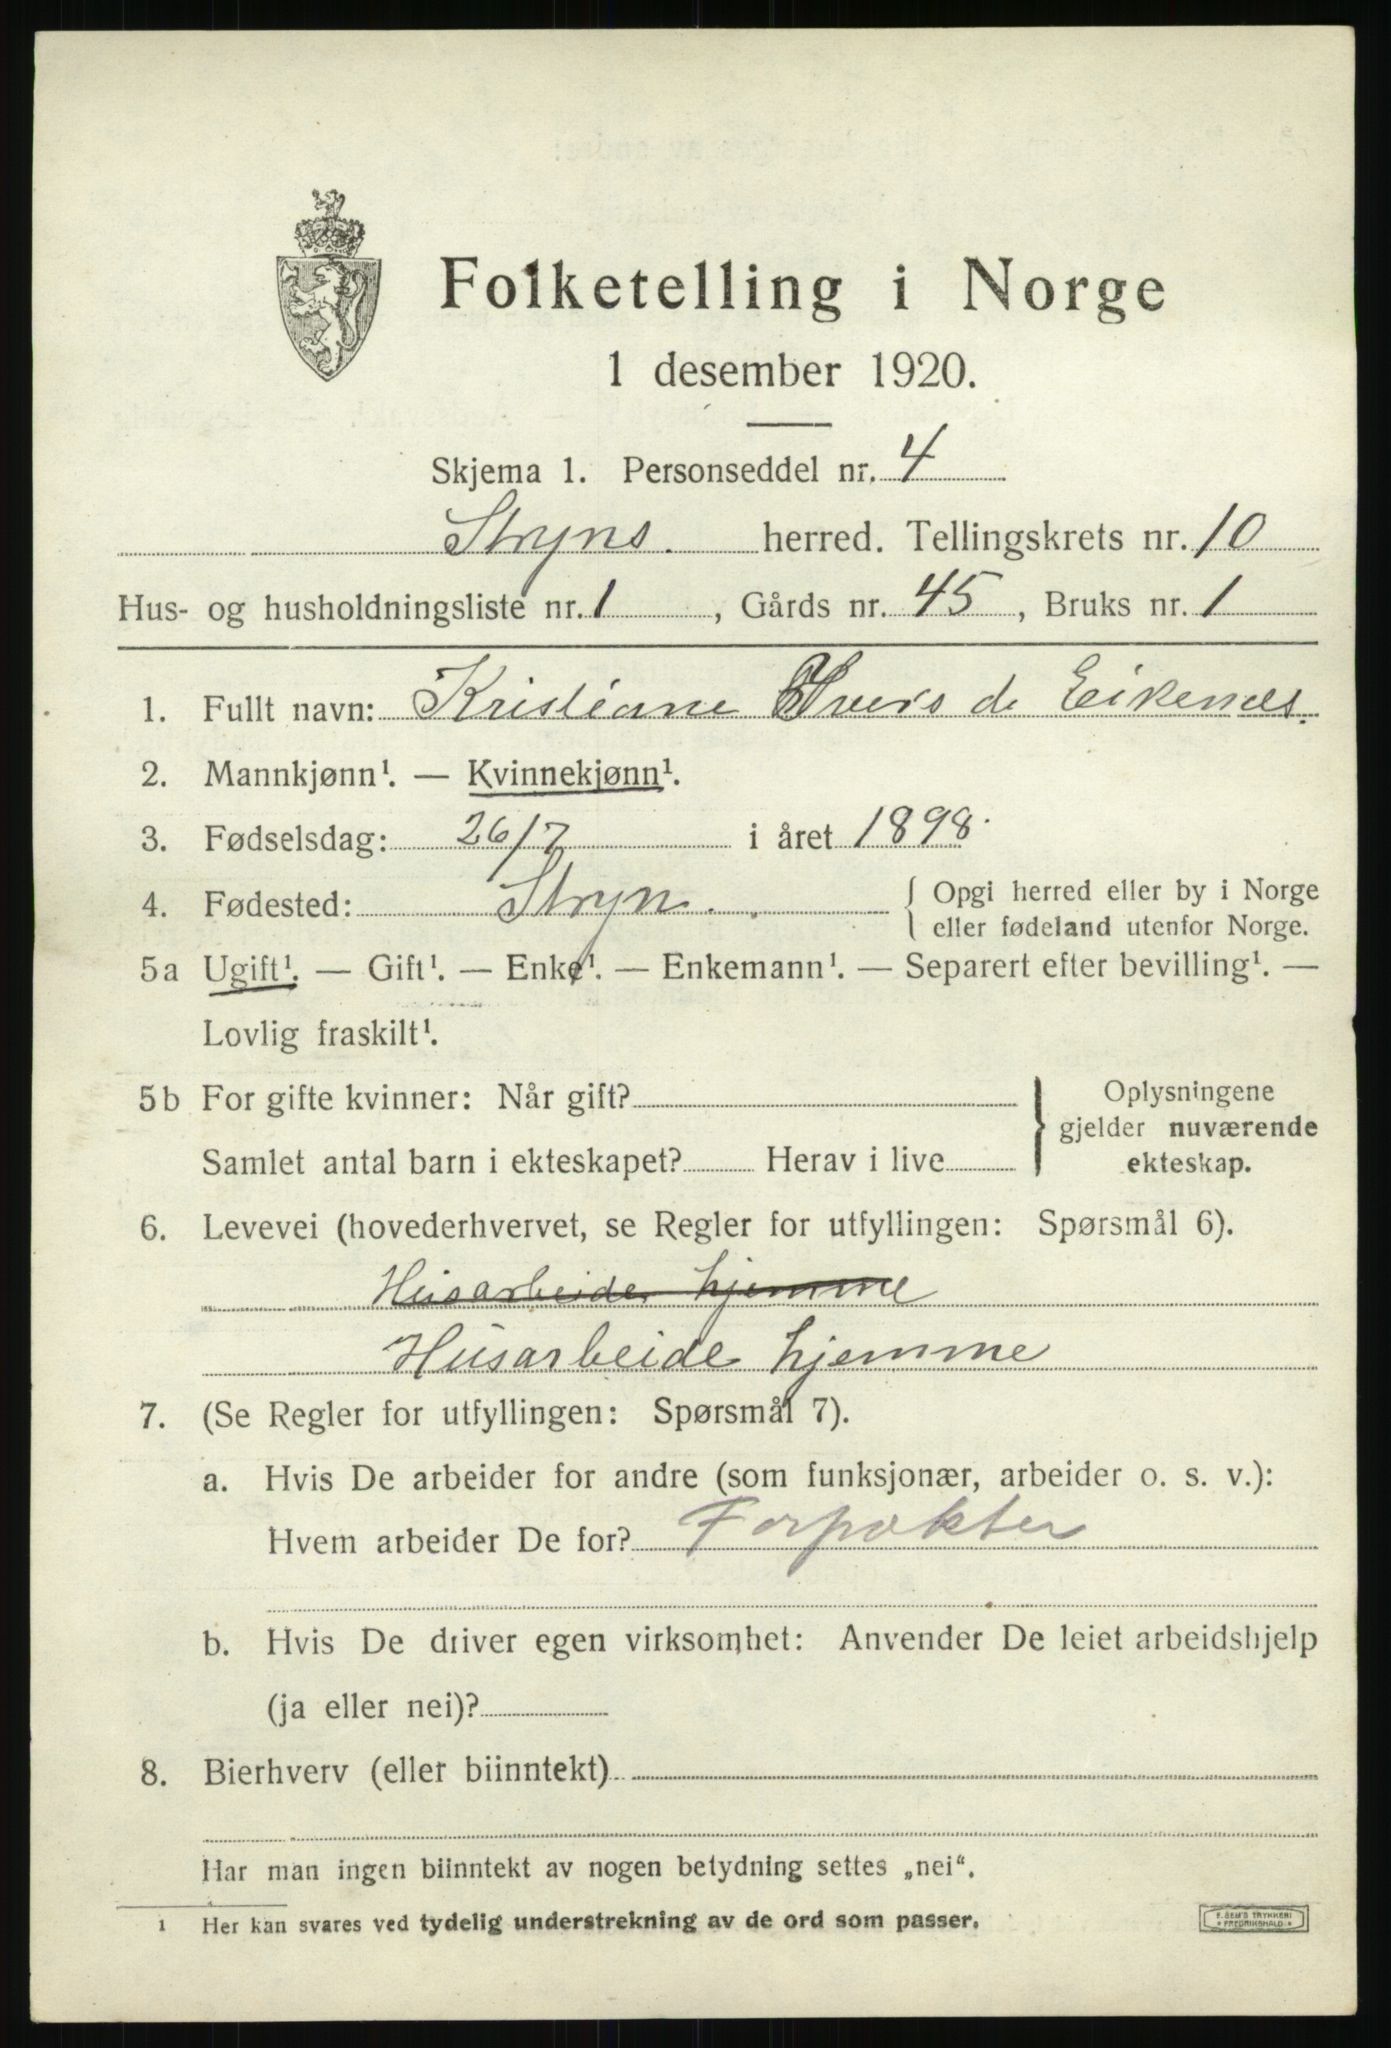 Folketelling i Norge
1 desember 1920.
Skjema 1. Personseddel nr. 4
Stryns. herred. Tellingskrets nr. 10
Hus- og husholdningsliste nr. 1, Gårds nr. 45, Bruks nr. 1
1. Fullt navn: Kristiane Ivers d. Eikenes.
2. Mannkjønn¹. — Kvinnekjønn¹.
3. Fødselsdag: 26/7 i året 1898.
4. Fødested: Stryn. { Opgi herred eller by i Norge
eller fødeland utenfor Norge.
5a Ugift¹. — Gift¹. — Enke¹. — Enkemann¹. — Separert efter bevilling¹. —
Lovlig fraskilt¹.
5b For gifte kvinner: Når gift? } Oplysningene
gjelder nuværende
Samlet antal barn i ekteskapet? Herav i live ekteskap.
6. Levevei (hovederhvervet, se Regler for utfyllingen: Spørsmål 6).
Husarbeide hjemme
Husarbeide hjemme
7. (Se Regler for utfyllingen: Spørsmål 7).
a. Hvis De arbeider for andre (som funksjonær, arbeider o. s. v.):
Hvem arbeider De for? Forpakter
b. Hvis De driver egen virksomhet: Anvender De leiet arbeidshjelp
(ja eller nei)?
8. Bierhverv (eller biinntekt)
Har man ingen biinntekt av nogen betydning settes „nei“.
¹ Her kan svares ved tydelig understrekning av de ord som passer.
F. SEM'S TRYKKERI
• FREDRIKSHALD •